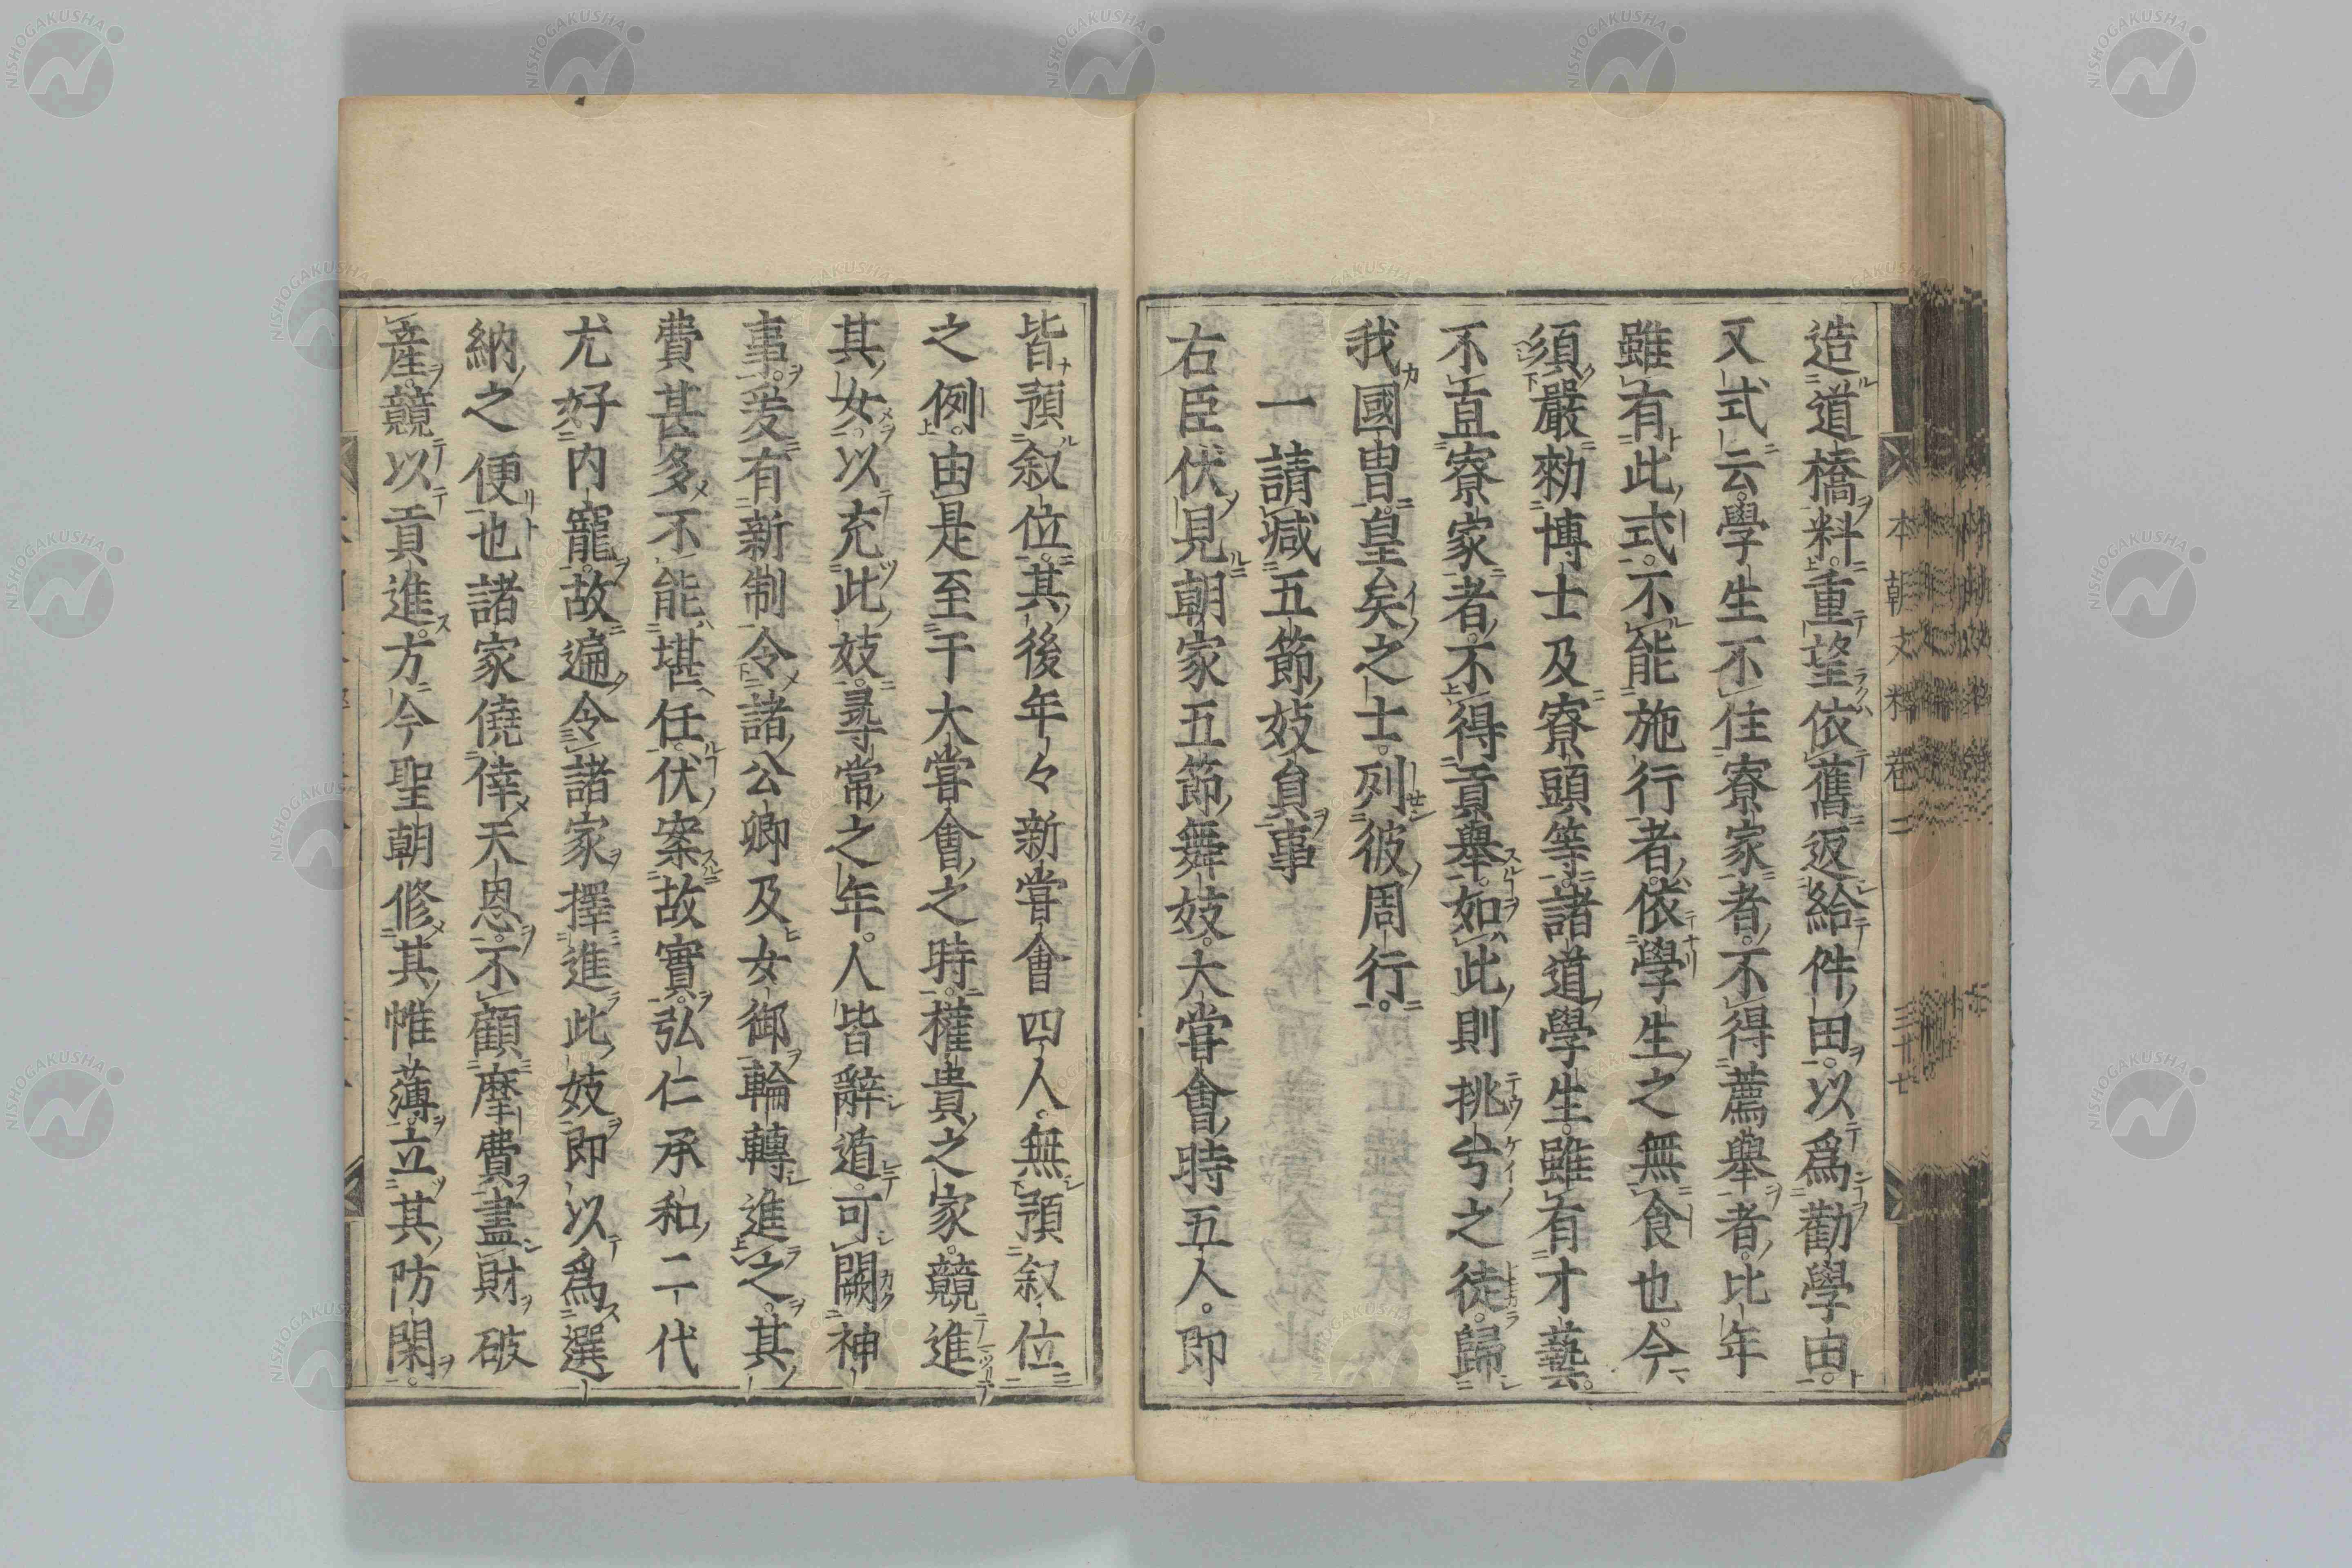 造道橋料重望依舊返給件田以爲勸學由
又式云學生不住寮家者不得薦舉者比年
雖有此式不能施行者依學生之無食也今
須嚴勅博士及寮頭等諸道學生雖有才藝
不直寮家者不得貢舉如此則挑兮之徒歸
我國冑皇矣之士列彼周行
一請減五節妓員事
右臣伏見朝家五節舞妓大嘗會時五人即
皆預叙位其後年々新嘗會四人無預叙位
之例由是至于大嘗會之時權貴之家競進
其女以充此妓尋常之年人皆辭遁可闕神
事爰有新制令諸公卿及女御輪轉進之其
費甚多不能堪任伏案故實弘仁承和二代
尤好内寵故遍令諸家擇進此妓即以爲選
納之便也諸家僥倖天恩不顧摩費盡財破
産競以貢進方今聖朝修其帷薄立其防閑
本朝文粹卷二
三十七
NISHOGAKUSHA